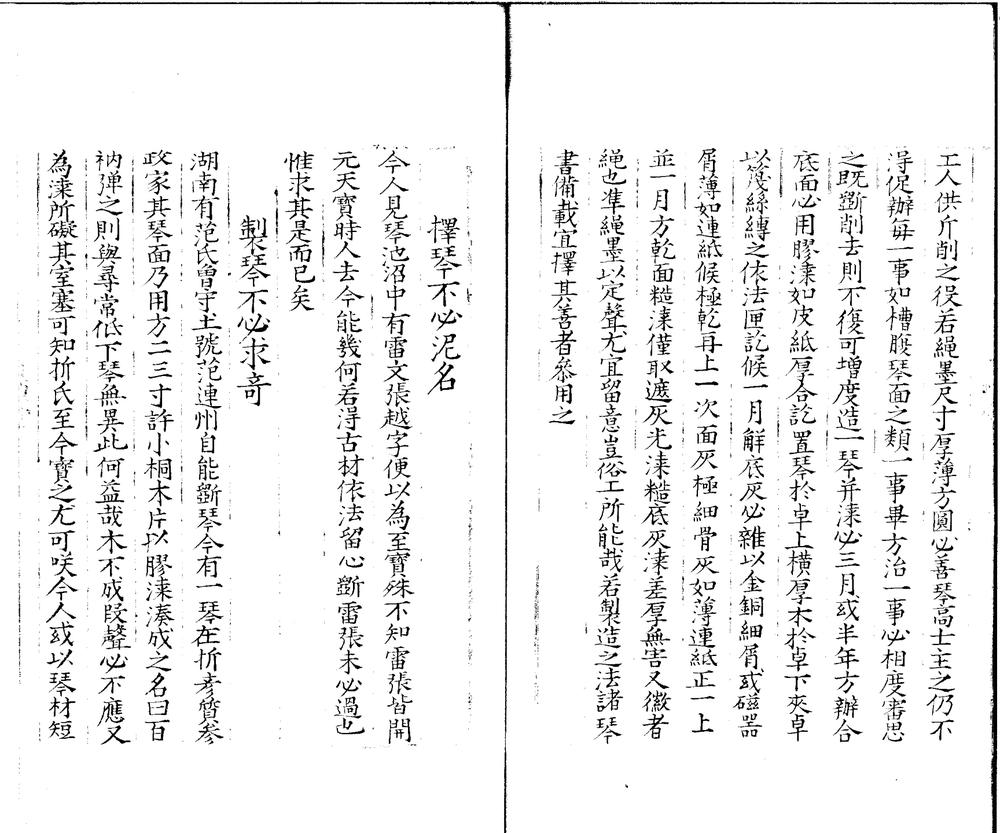 工人供斤削之役若繩墨尺寸厚薄方圓必善琴高士主之仍不
淂促辦每一事如槽腹琴面之類一事畢方治一事必相度審思
之既斵削去則不復可增度造一琴并漆必三月或半年方辦合
底面必用膠漆如皮紙厚合訖置琴扵卓上橫厚木扵卓下夾卓
以篾絲縛之依法匣訖候一月觧底灰必雜以金銅細屑或磁器
屑薄如連紙候極乾再上一次面灰極細骨灰如薄連紙正一上
並一月方乾面糙漆僅取遮灰光漆糙底灰漆差厚無害又徽者
繩也準繩墨以定聲尤宜留意豈俗工所能哉若製造之法諸琴
書備載宜擇其善者叅用之
擇琴不必泥名
今人見琴池沼中有雷文張越字便以為至寶殊不知雷張皆開
元天寶時人去今能幾何若淂古材依法留心斵雷張未必過也
惟求其是而已矣
製琴不必求竒
湖南有范氏曽守土號范連州自能斵琴今有一琴在折彦質叅
政家其琴面乃用方二三寸許小桐木片以膠漆湊成之名曰百
衲弹之則與尋常低下琴無異此何益哉木不成段聲必不應又
為漆所礙其室塞可知折氏至今寶之尤可咲今人或以琴材短